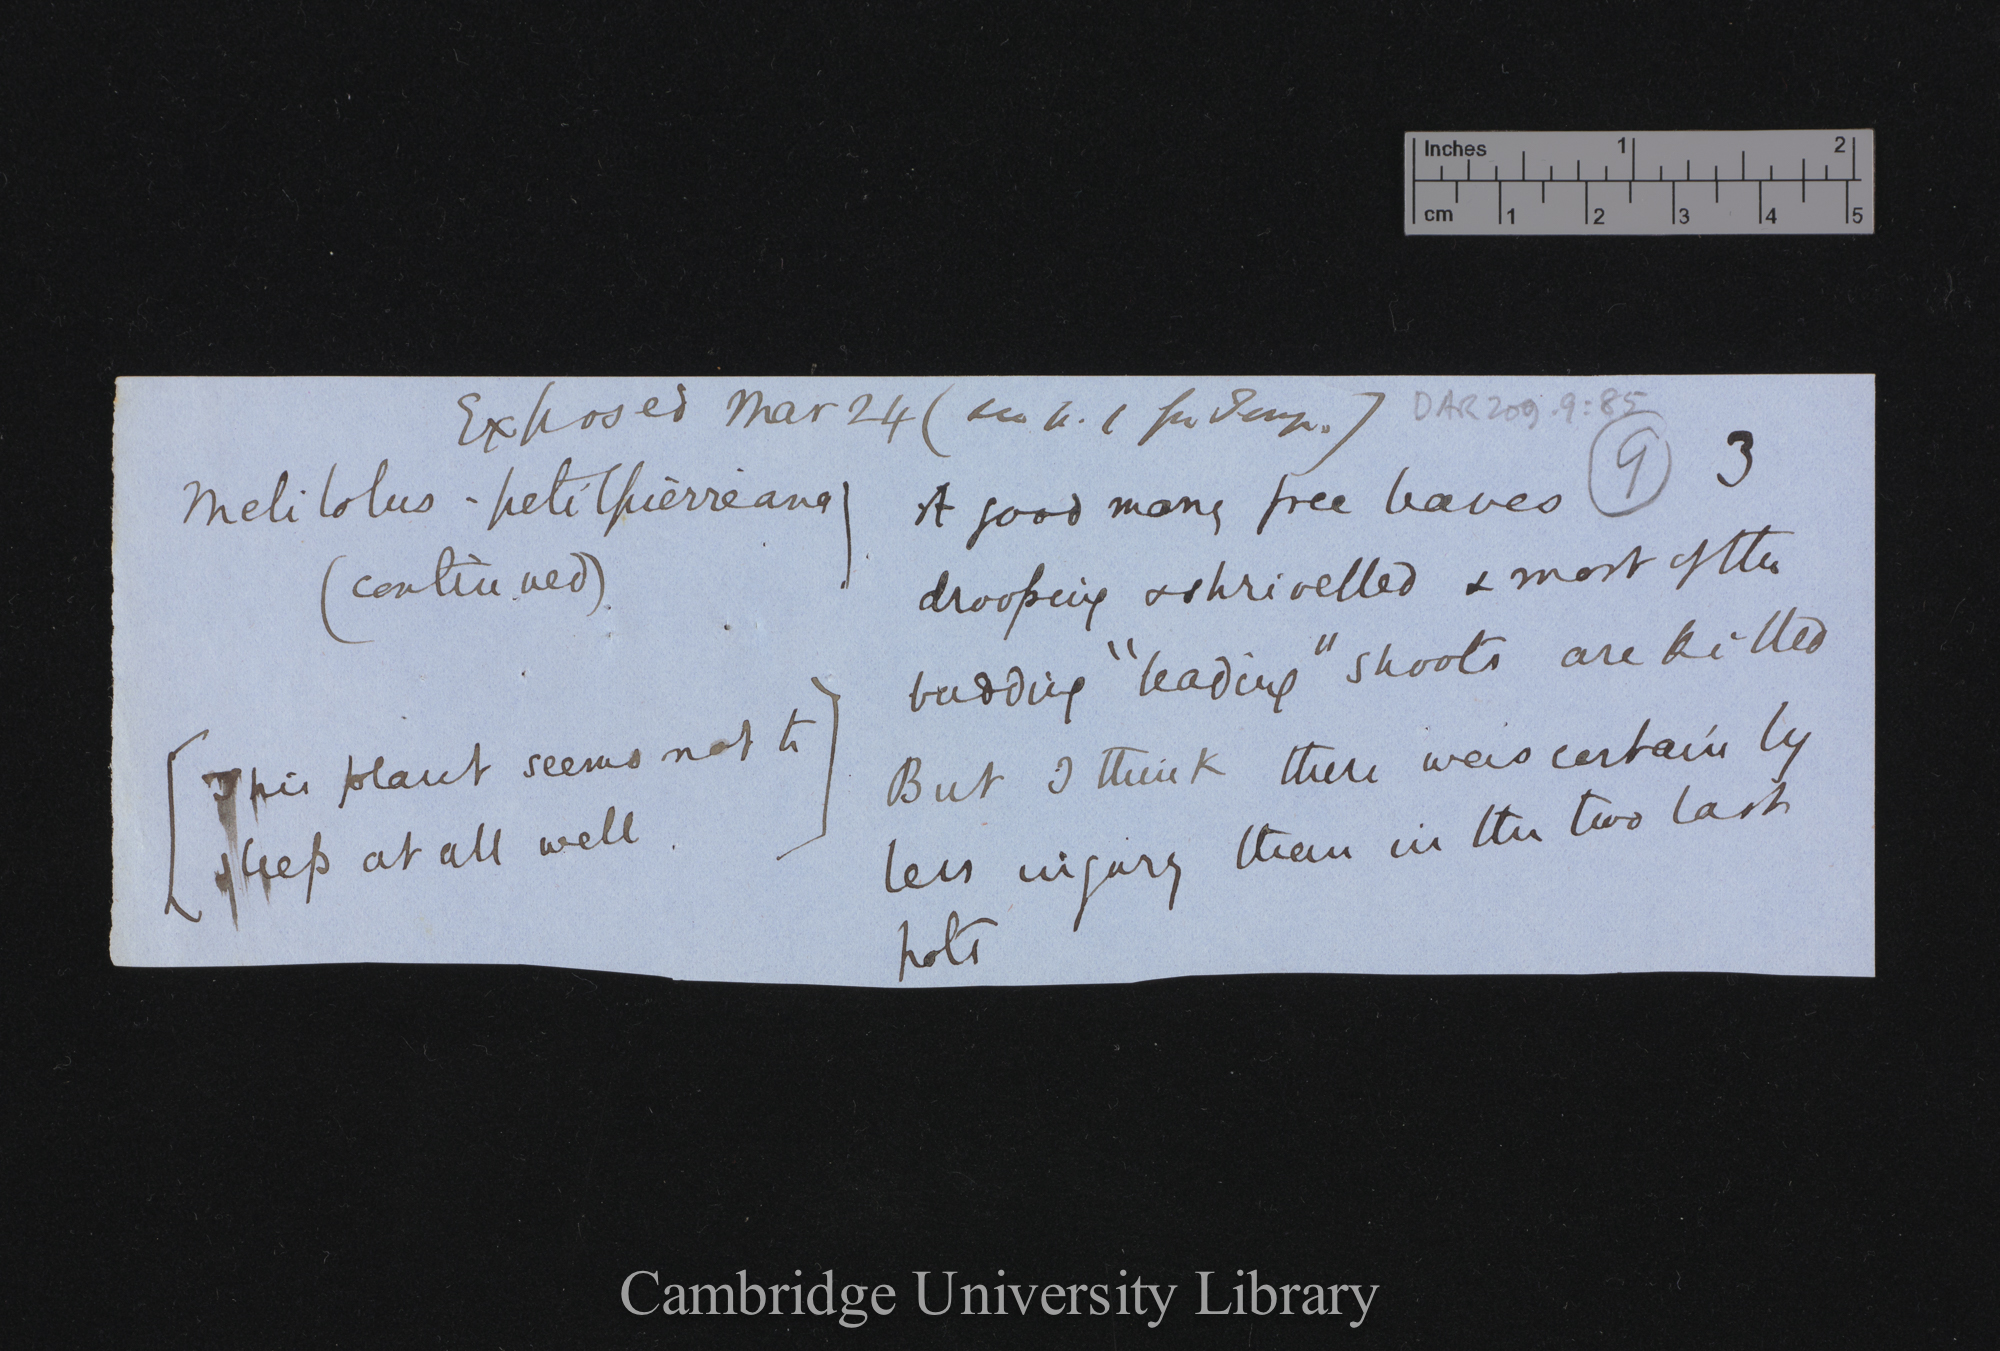 Inches 1 2
cm 1 2 3 4 5
Exposed Mar 24 (see p. 1 for Temp.)
DAR 209.9:85
(9) 3
Melilotus - petitpierreana
(continued)
[This plant seems not to
sleep at all well.]
A good many free leaves
drooping & shrivelled & most of the
budding "leading" shoots are killed
But I think there was certainly
less injury than in the two last
pots
Cambridge University Library